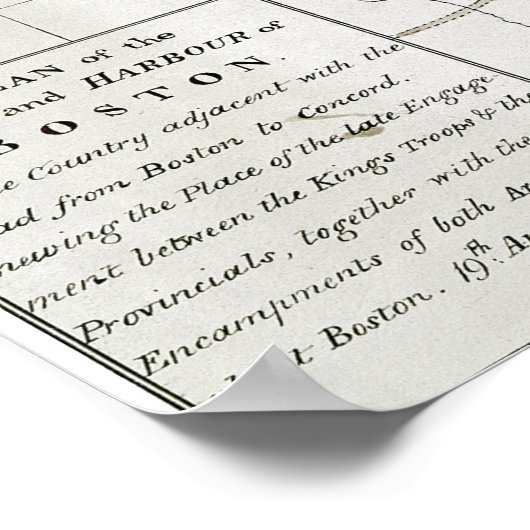 LAN of the
and HARBOUR of
BOSTON.
e Country adjacent with the
ad from Boston to Concord.
hewing the Place of the late Engage-
ment between the Kings Troops & the
Provincials, together with the
Encampments of both Ar
t Boston. 19th. A